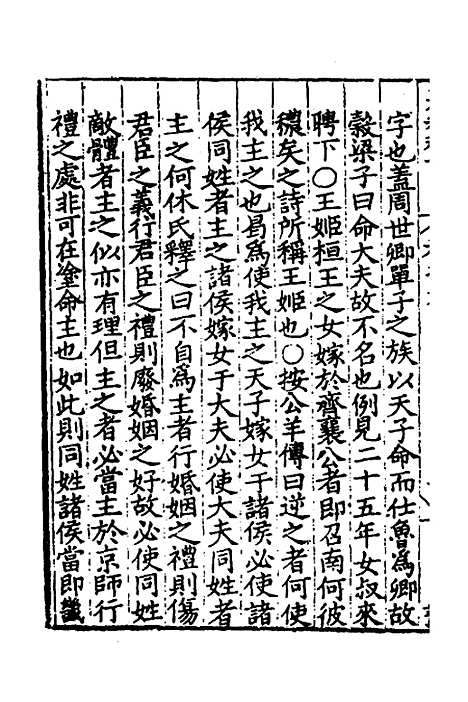 字也蓋周世卿單子之族以天子命而仕魯為卿故
穀梁子曰命大夫故不名也例見二十五年女叔來
聘下〇王姬桓王之女嫁於齊襄公者即召南何彼
穠矣之詩所稱王姬也〇按公羊傳曰逆之者何使
我主之也曷為使我主之天子嫁女于諸侯必使諸
侯同姓者主之諸侯嫁女于大夫必使大夫同姓者
主之何休氏釋之曰不自為主者行婚姻之禮則傷
君臣之義行君臣之禮則廢婚姻之好故必使同姓
敵體者主之似亦有理但主之者必當主於京師行
禮之處非可在塗命主也如此則同姓諸侯當即